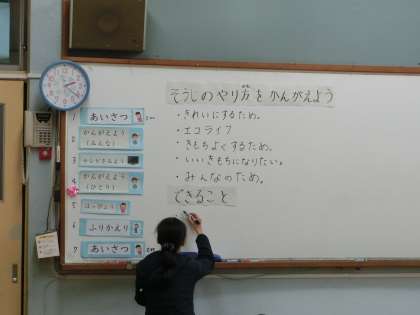 そうじのやり方をかんがえよう
・きれいにするため。
・エコライフ
・きもちよくするため。
・いいきもちになりたい。
・みんなのため。
できること
1 あいさつ
2 かんがえよう
(みんな)
3
4 かんがえよう
(ひとり)
5 はっぴょう
6 ふりかえり
7 あいさつ